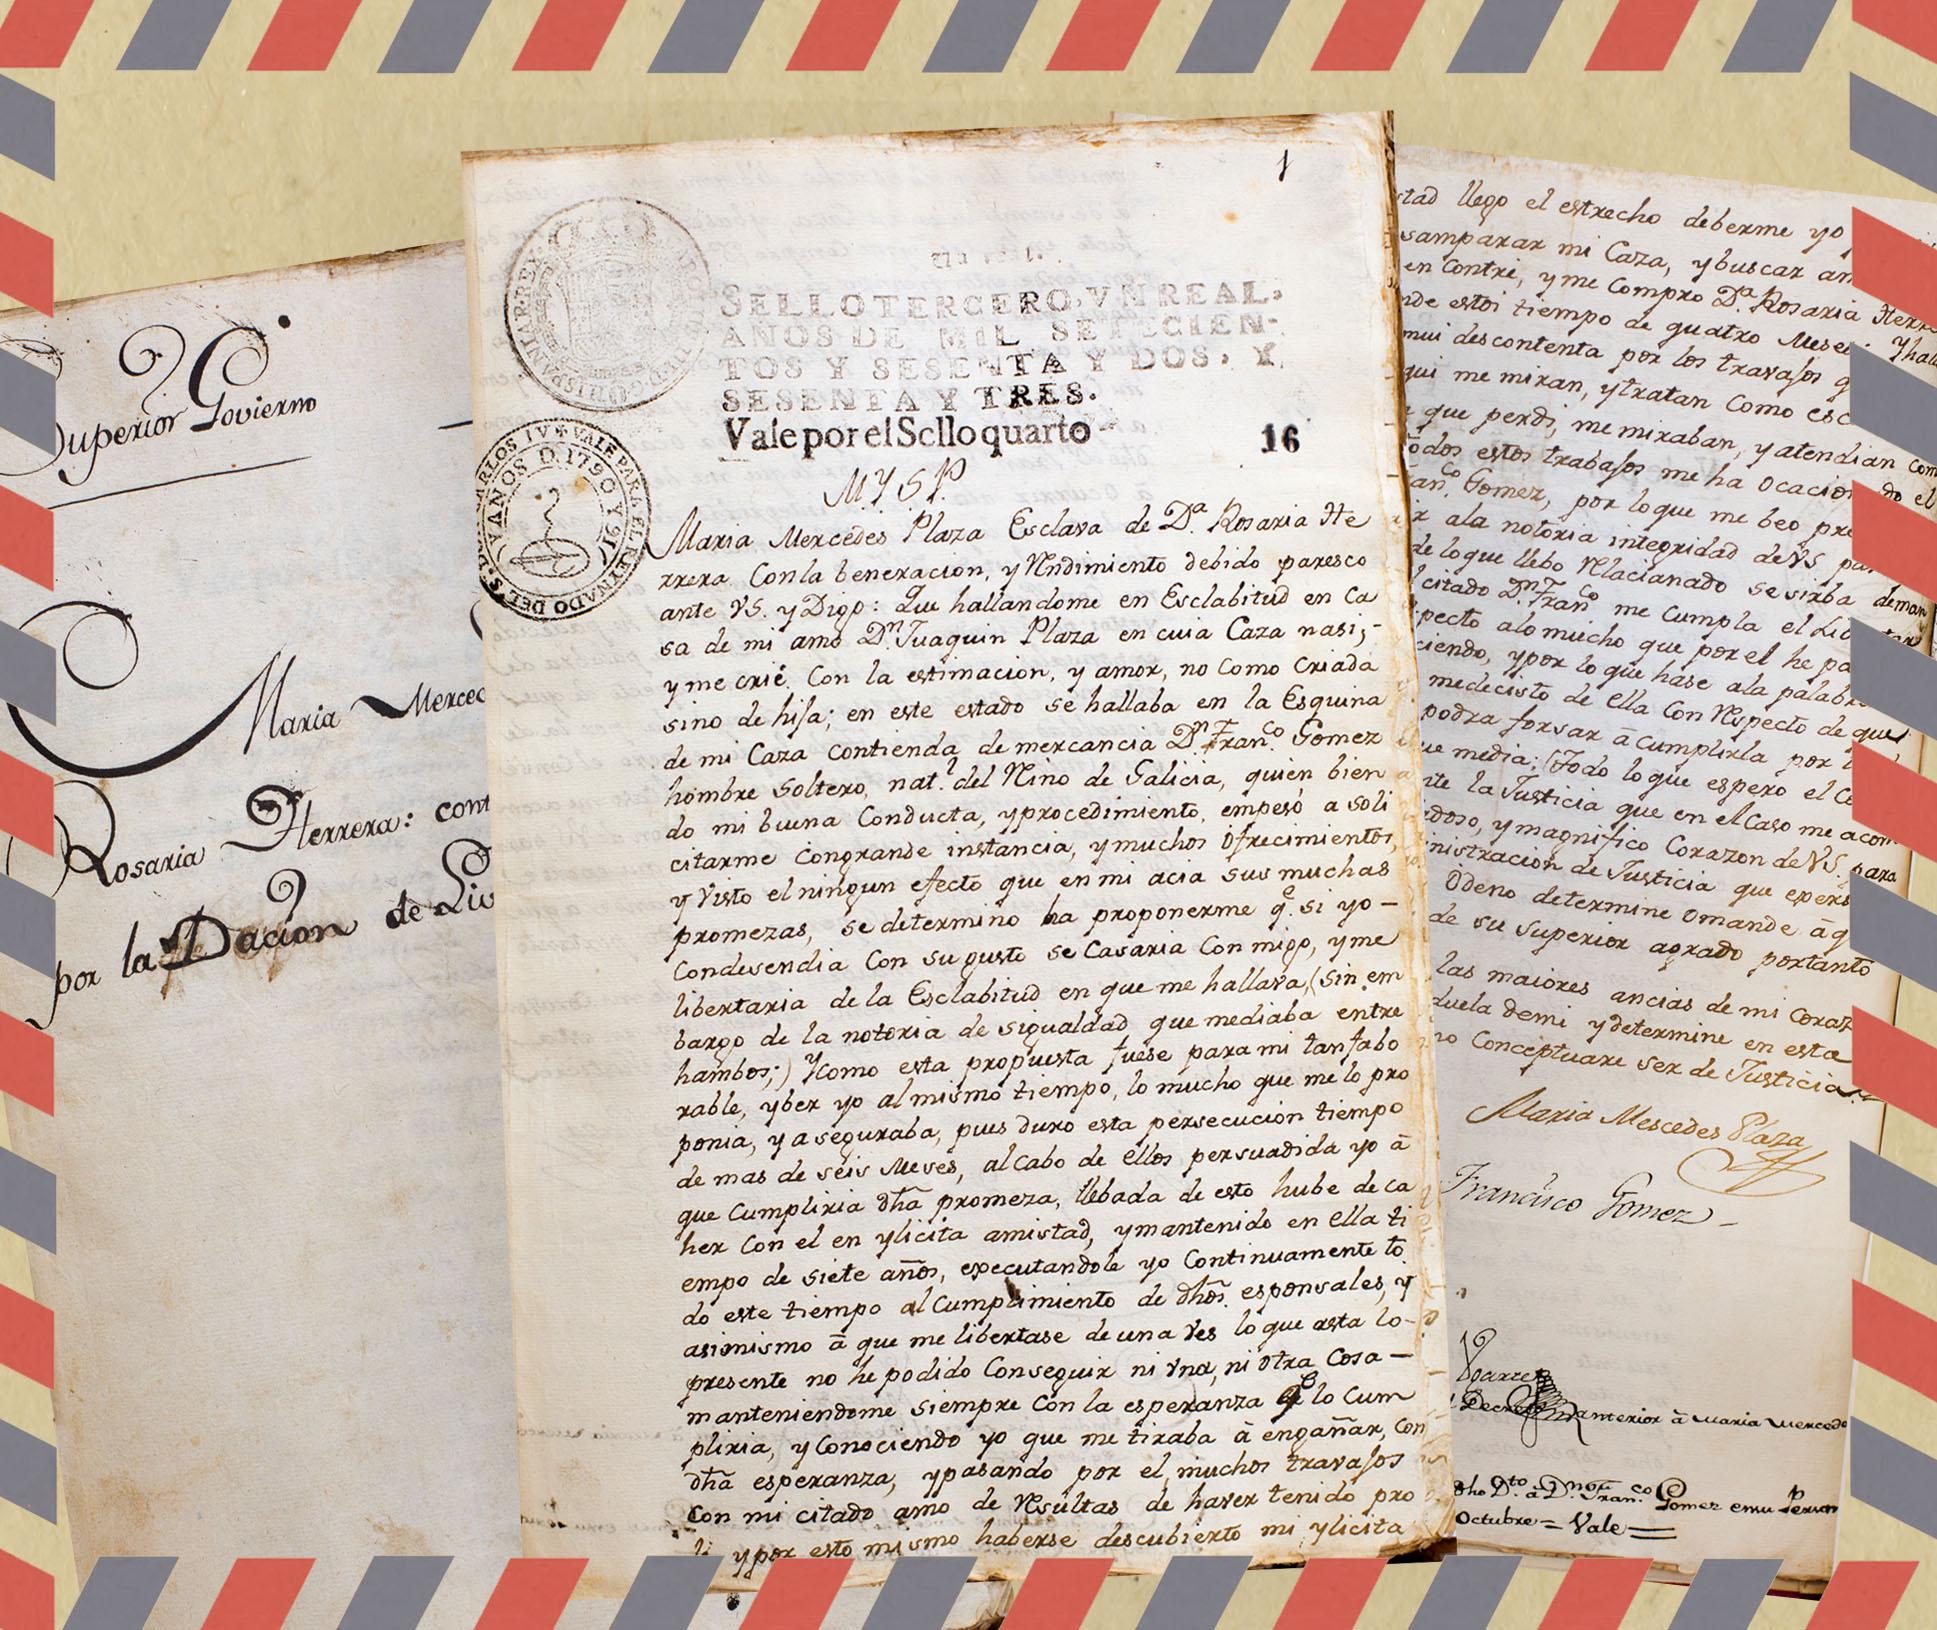 Superior Govierno
Maria Merced
Rosaria Herrera: cont
por la Dacion de Liv
1
SELLO TERCERO, VN REAL,
AÑOS DE MIL SETECIEN-
TOS Y SESENTA Y DOS, Y
SESENTA Y TRES.
Vale por el Sello quarto
16
CARLOS IV VALE PARA EL REYNADO DEL S. D.
AÑOS D. 1790 Y 91
HISPANIAR REX
M. Y S. P.
Maria Mercedes Plaza Esclava de Dª. Rosaria He
rrera Con la beneracion, y Rndimiento debido paresco
ante VS. y Digo: Que hallandome en Esclabitud en Ca
sa de mi amo Dn. Juaquin Plaza en cuia Caza nasi,-
y me crié Con la estimacion, y amor, no como Criada
sino de hija; en este estado se hallaba en la Esquina
de mi Caza contienda de mercancia Dn. Franco. Gomez
hombre Soltero, natl. del Nino de Galicia, quien bien
do mi buena Conducta, y procedimiento, empesó a soli
citarme Con grande instancia, y muchos ofrecimientos,
y Visto el ningun efecto que en mi acia sus muchas
promezas, se determino ha proponerme qe. si yo-
Condesendia Con su gusto se Casaria Con migo, y me
libertaria de la Esclabitud en que me hallava, (sin em
bargo de la notoria de sigualdad que mediaba entre
hambos;) Y como esta propuesta fuese para mi tan fabo
rable, y ber yo al mismo tiempo, lo mucho que me lo pro
ponia, y aseguraba, pues duro esta persecucion tiempo
de mas de seis Meses, al cabo de ellos persuadida yo â
que Cumpliria dha promeza, llebada de esto hube de ca
her Con el en ylicita amistad, y mantenido en ella ti
empo de siete años, executandole yo Continuamente to
do este tiempo al Cumplimiento de dhos. esponsales, y
asimismo â que me libertase de una Ves lo que asta lo-
presente no he podido Conseguir ni una, ni otra Cosa-
manteniendome siempre Con la esperanza qe lo Cum
pliria, y Conociendo yo que me tiraba à engañar, Con
dha esperanza, y pasando por el muchos travajos
Con mi citado amo de Resultas de haver tenido pro
y por esto mismo haberse descubierto mi ylicita
stad llego el estrecho deberme yo
samparar mi Caza, y buscar am
en contré, y me Compro Dª. Rosaria Herre
nde estoi tiempo de quatro Meses Y hall
mui descontenta por los travajos q
qui me miran, y tratan Como esc
que perdi, me miraban, y atendian com
todos estos trabajos me ha Ocacio do el
anco. Gomez, por lo que me beo pre
r ala notoria integridad de VS pa
de lo que llebo Relacionado se sirba deman
citado Dn. Franco me Cumpla el Lib
pecto alo mucho que por el he pa
ciendo, y por lo que hase ala palabr
medecisto de ella Con Respecto de que
podra forsar â Cumplirla por l
ue media: (Todo lo que espero el C
te la Justicia que en el Caso me acom
doso, y magnifico Corazon de VS. para
nistracion de Justicia que expers
Odeno determine Omande â q
de su superior agrado portanto
las maiores ancias de mi Coraz
duela demi y determine en esta
no Conceptuare ser de Justicia
Maria Mescedes Plaza
Francisco Gomez
Ygarre
Decre anterior â Maria Mercede
dho Dto. â Dn. Franco Gomez en su Person
Octubre = Vale =